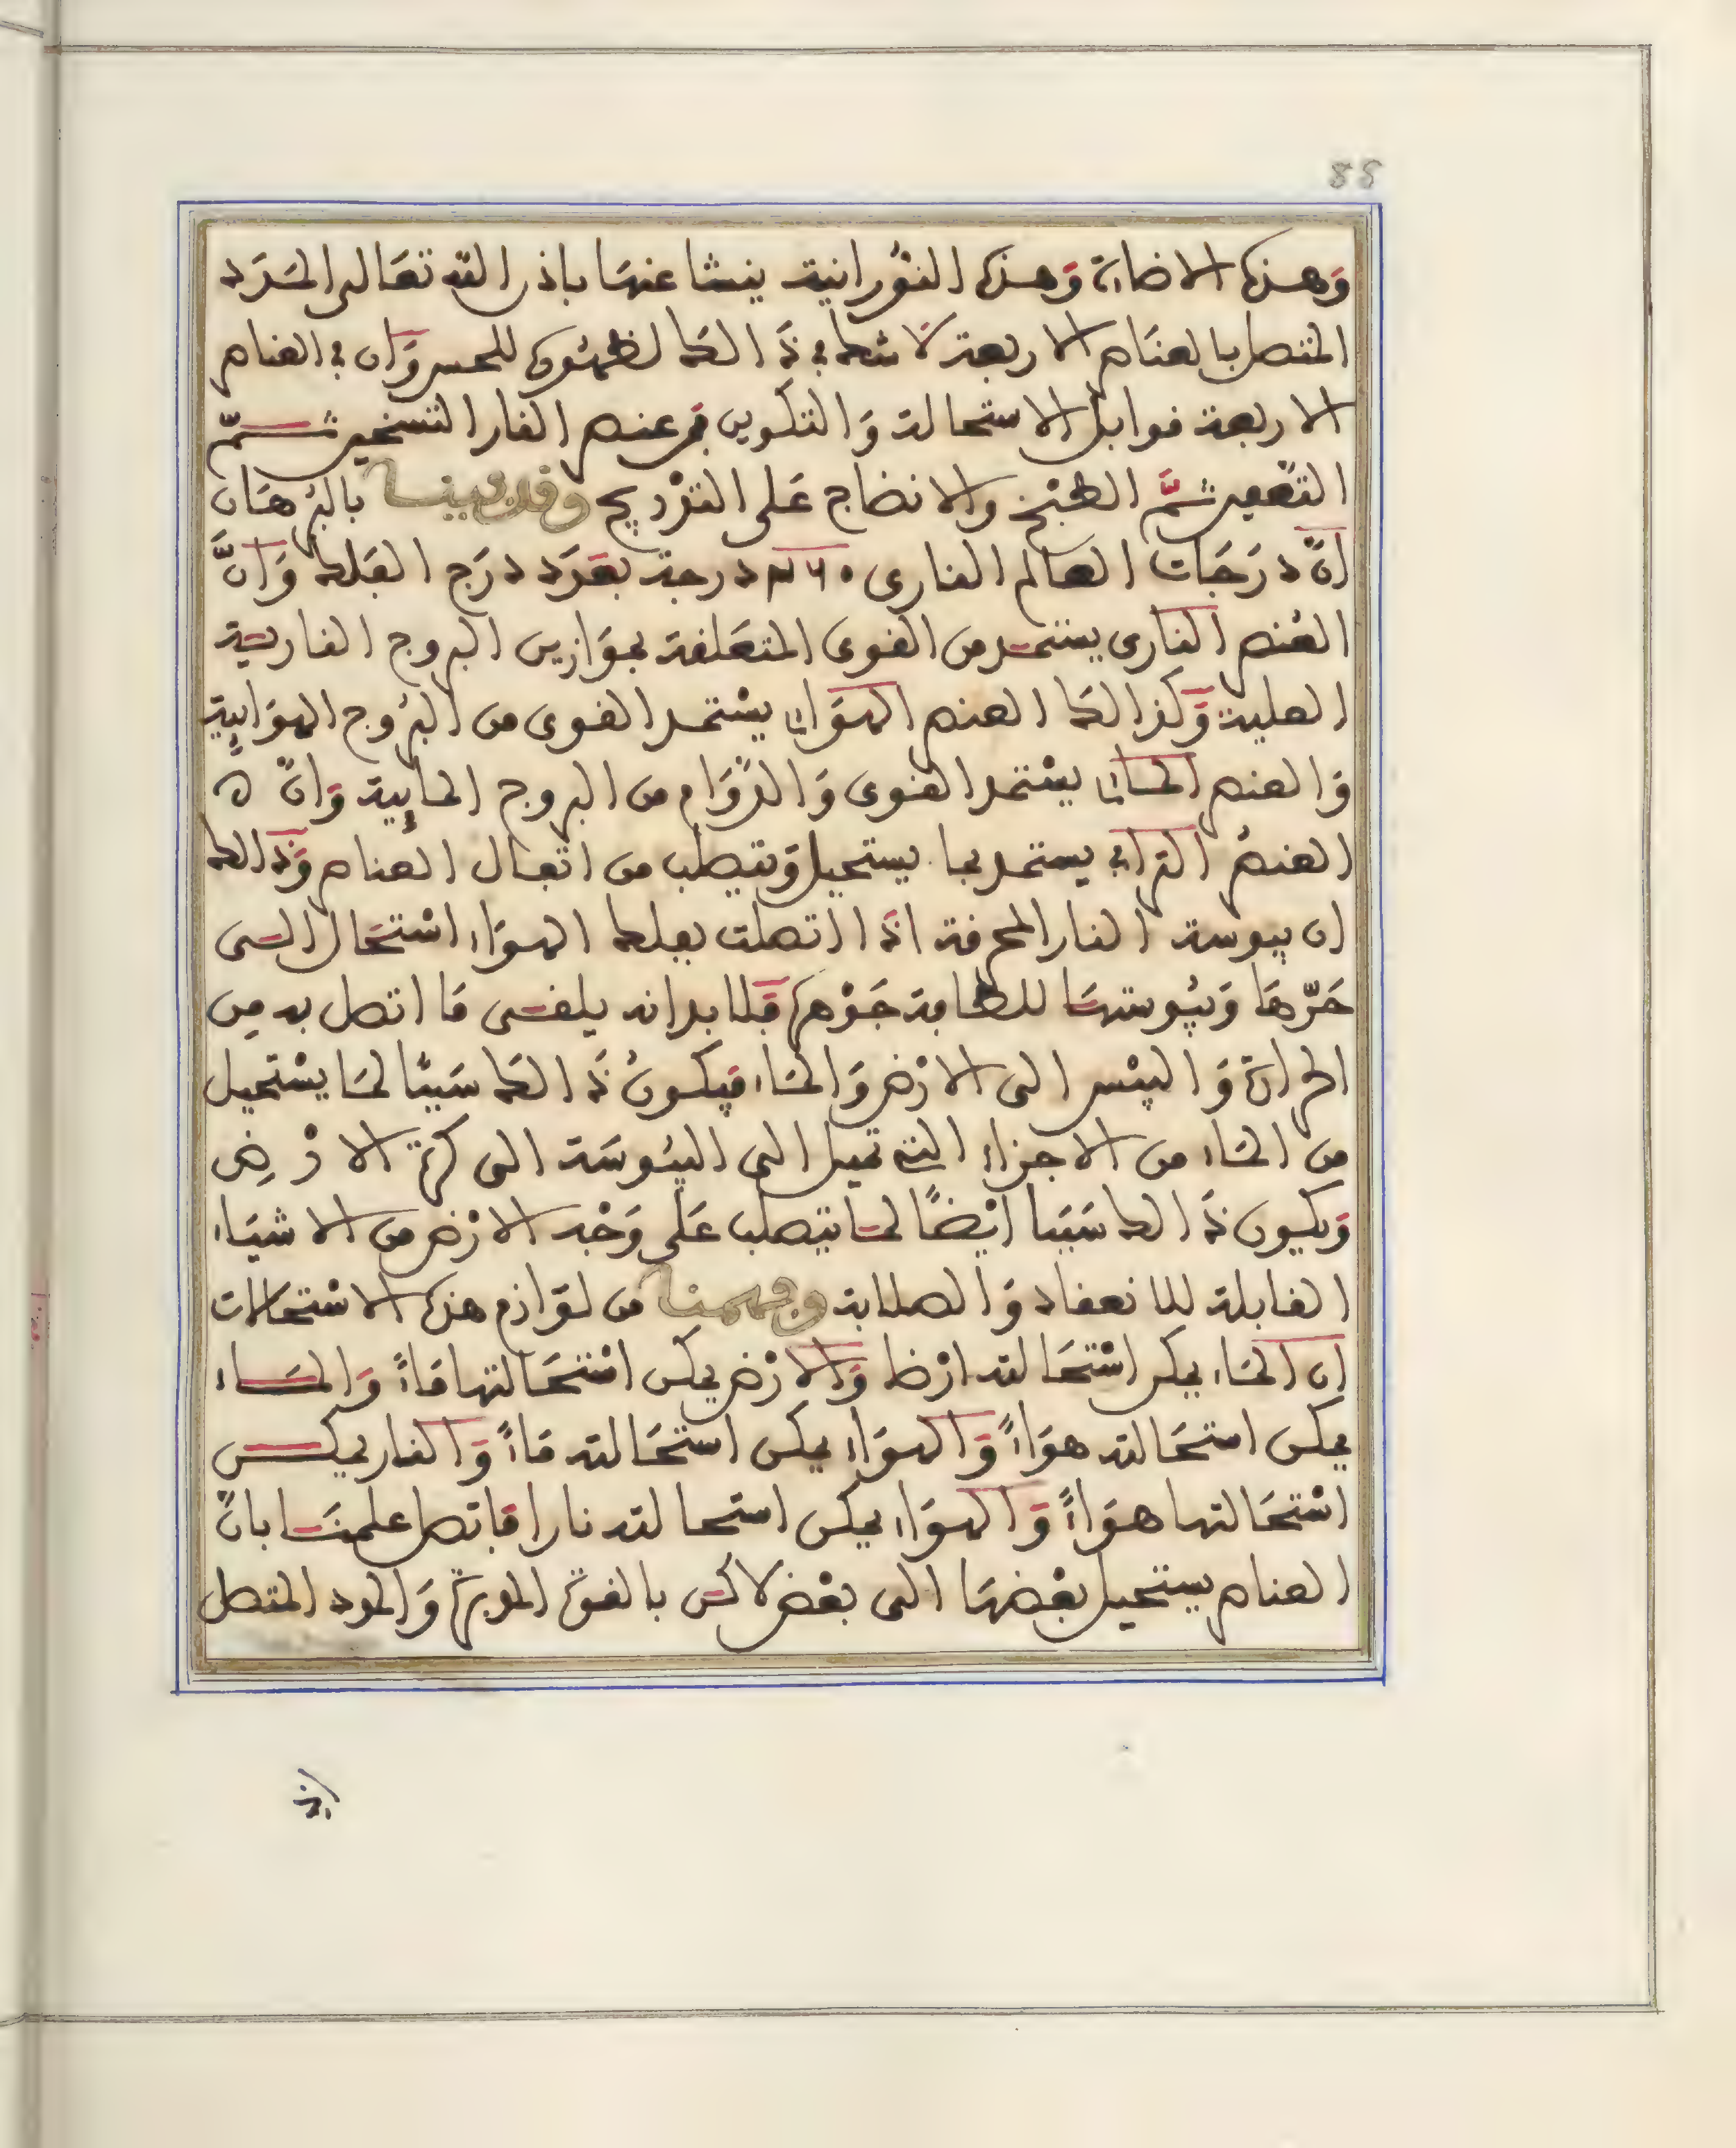 88
وهذه الاضاءة وهذه النورانية ينشا عنها باذن الله تعالى المدد
المتصل بالعناصر الاربعة لا شك في ذالك لظهوره للحس وان في العناصر
الاربعة قوابل الاستحالة والتكوين فمن عنصر النار التسخين ثم
التعفين ثم الطبخ والانضاج على التدريج وقد بينا بالبرهان
ان درجات العالم الناري ٣٦٠ درجة بعدد درج الفلك وان
العنصر الناري يستمد من القوى المتعلقة بموازين البروج النارية
العلية وكذالك العنصر الهوائي يستمد القوى من البروج الهوائية
والعنصر المائي يستمد القوى والدوام من البروج المائية وان
العنصر الترابي يستمد بما يستحيل ويتصلب من اثفال العناصر وذالك
ان يبوسة النار المحرقة اذا اتصلت بفلك الهواء استحال الى
حرها ويبوستها للطافة جوهره فلا بد انه يلقى ما اتصل به من
الحرارة واليبس الى الارض والماء فيكون ذالك سببا لما يستحيل
من الماء من الاجزاء التي تميل الى اليبوسة الى كرة الارض
ويكون ذالك سببا ايضا لما يتصلب على وجه الارض من الاشياء
القابلة للانعقاد والصلابة وفهمنا من لوازم هذه الاستحالات
ان الماء يمكن استحالته ارضا والارض يمكن استحالتها ماء والماء
يمكن استحالته هواء والهواء يمكن استحالته ماء والنار يمكن
استحالتها هواء والهواء يمكن استحالته نارا فاتصل علمنا بان
العناصر يستحيل بعضها الى بعض لاكن بالقوة المدبرة والمدد المتصل